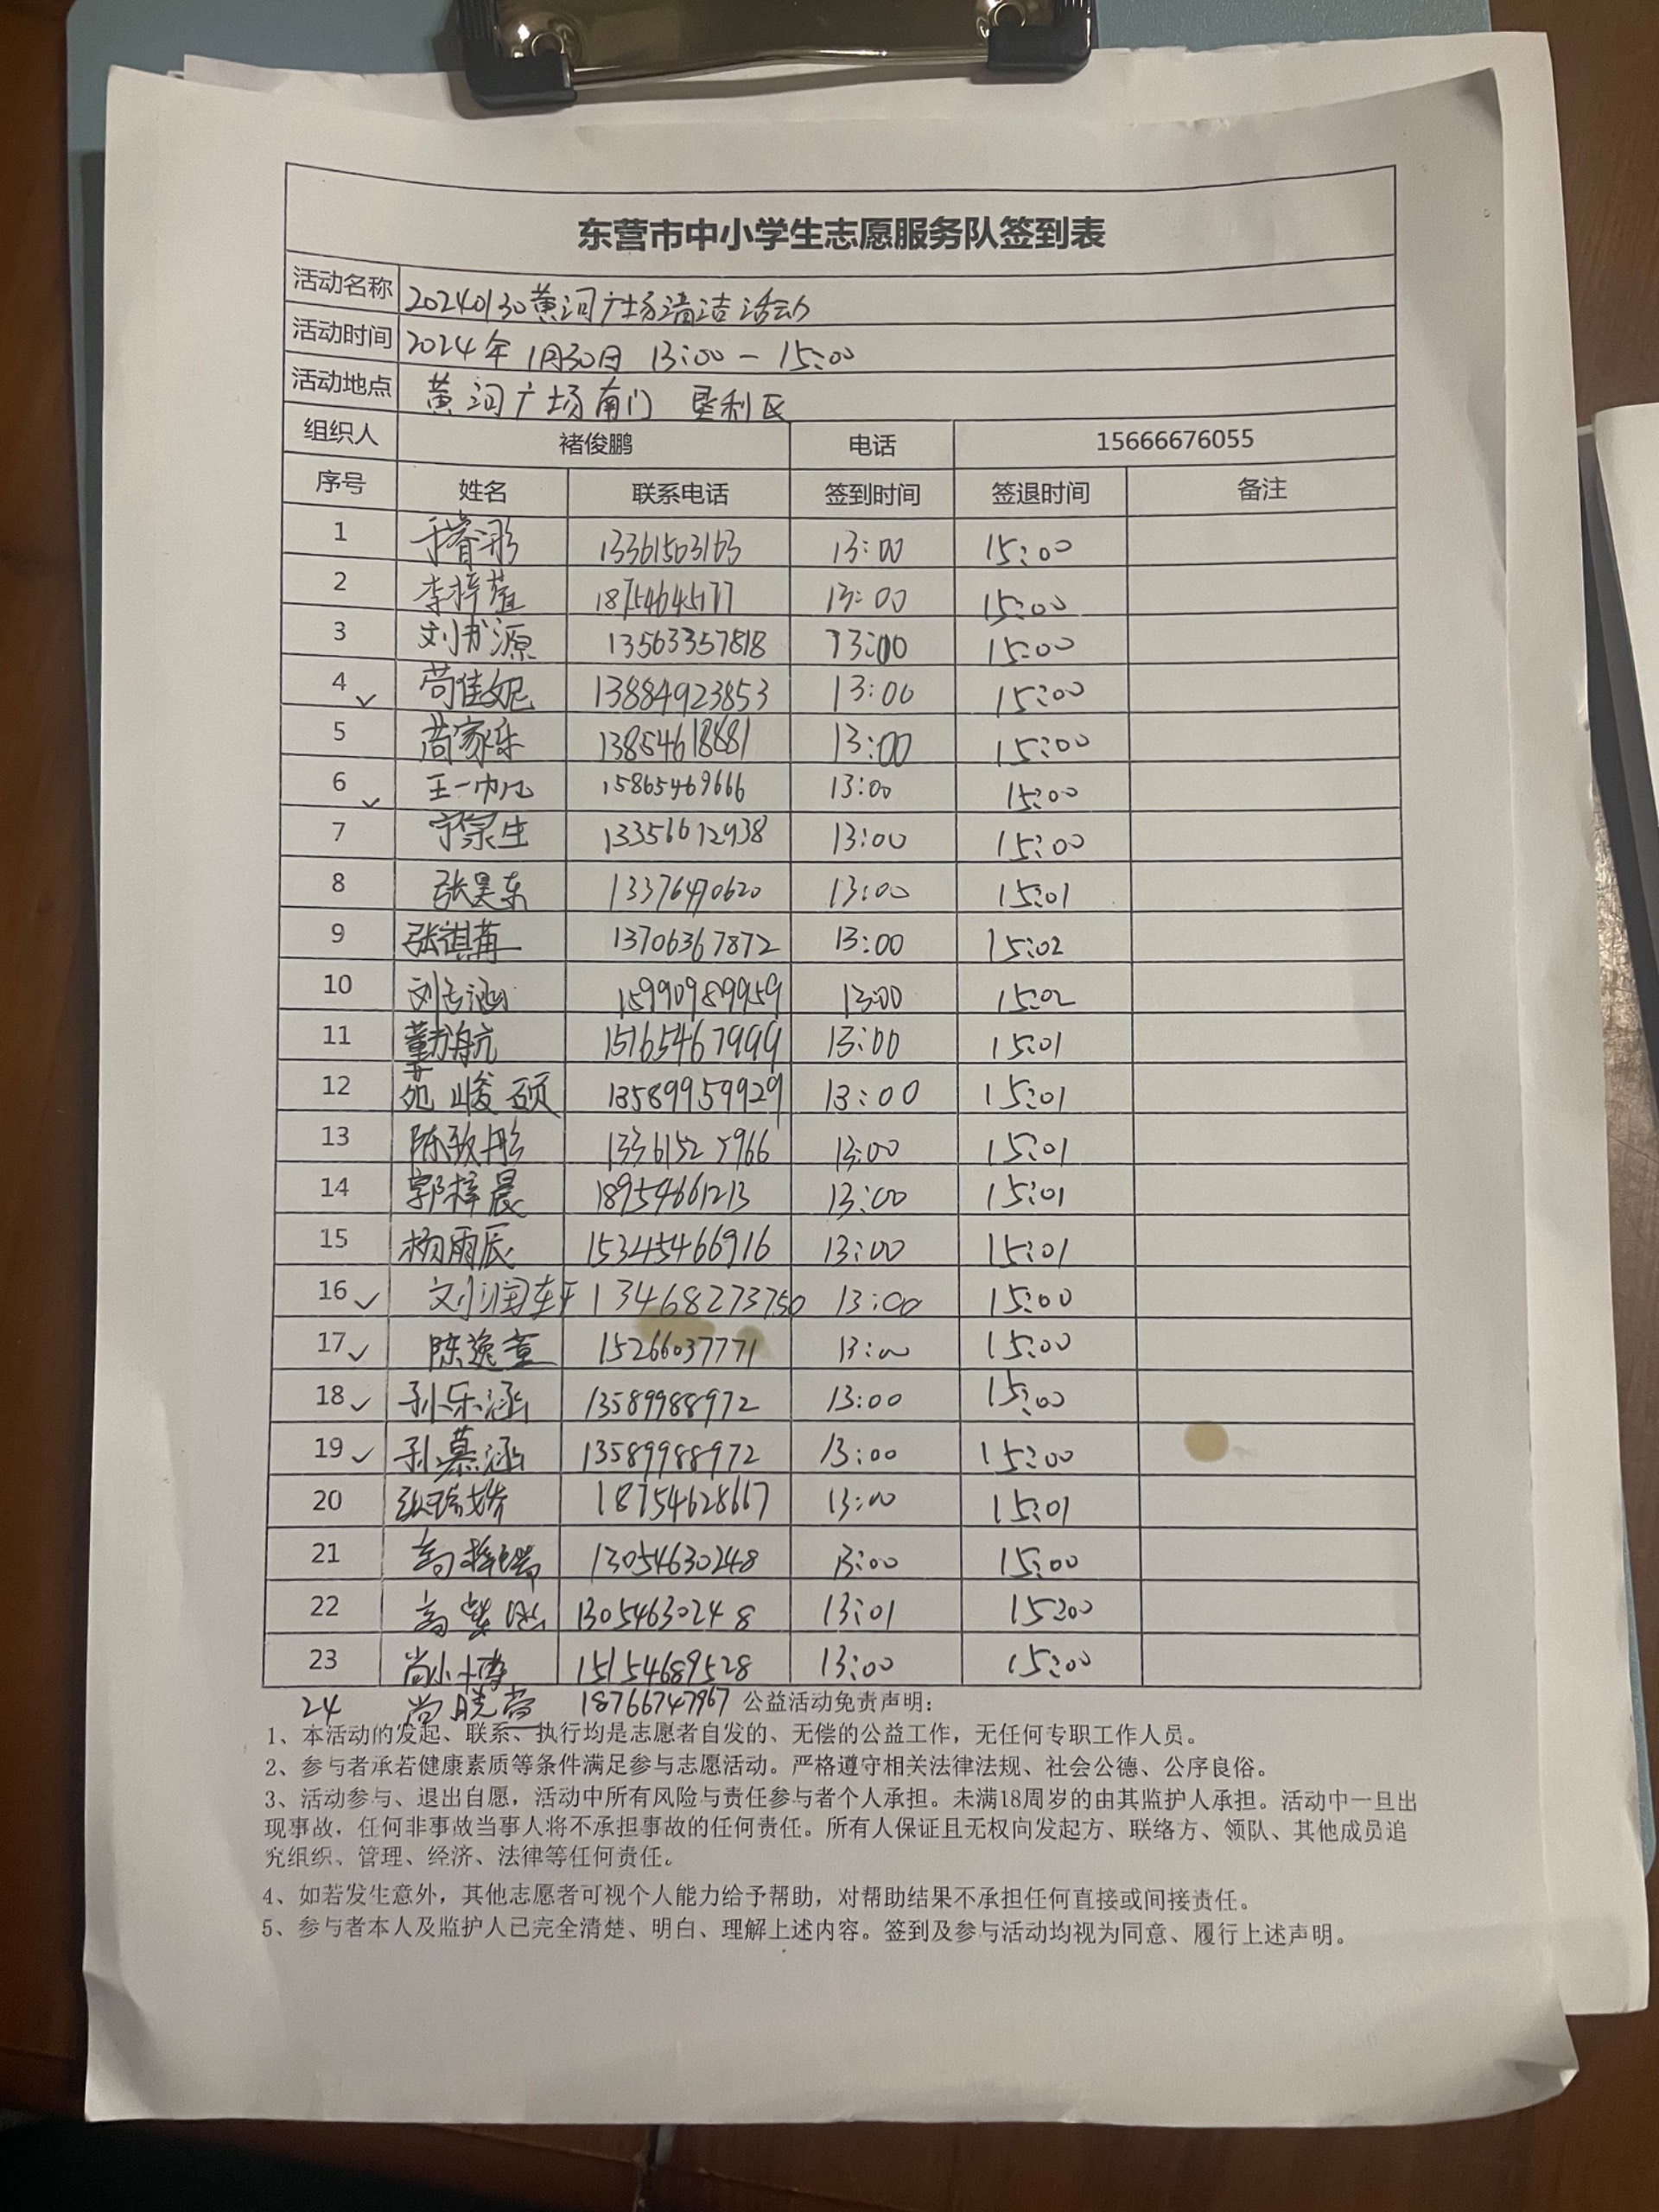 东营市中小学生志愿服务队签到表
活动名称 20240130黄河广场清洁活动
活动时间 2024年1月30日 13:00 - 15:00
活动地点 黄河广场南门 垦利区
组织人 褚俊鹏 电话 15666676055
序号 姓名 联系电话 签到时间 签退时间 备注
1 于睿彤 13361503163 13:00 15:00
2 李梓萱 13:00 15:00
3 刘书源 13563357818 13:00 15:00
4 苟佳妮 13884923853 13:00 15:00
5 13854618881 13:00 15:00
6 王一帆 15865469666 13:00 15:00
7 宁宗生 13356612938 13:00 15:00
8 张昊东 13376490620 13:00 15:01
9 张祺苒 13706367872 13:00 15:02
10 15990989959 13:00 15:02
11 董书航 15765467999 13:00 15:01
12 苑峻硕 13589959929 13:00 15:01
13 陈致彤 13361525966 13:00 15:01
14 郭梓晨 18954661213 13:00 15:01
15 杨雨辰 15345466916 13:00 15:01
16 刘润轩 13468273750 13:00 15:00
17 陈逸萱 15266037771 13:00 15:00
18 孙乐涵 13589988972 13:00 15:00
19 孙慕涵 13589988972 13:00 15:00
20 18754628667 13:00 15:01
21 13054630248 13:00 15:00
22 13054630248 13:01 15:00
23 尚小博 15154689528 13:00 15:00
24 尚晓萱 18766747967 公益活动免责声明：
1、本活动的发起、联系、执行均是志愿者自发的、无偿的公益工作，无任何专职工作人员。
2、参与者承若健康素质等条件满足参与志愿活动。严格遵守相关法律法规、社会公德、公序良俗。
3、活动参与、退出自愿，活动中所有风险与责任参与者个人承担。未满18周岁的由其监护人承担。活动中一旦出
现事故，任何非事故当事人将不承担事故的任何责任。所有人保证且无权向发起方、联络方、领队、其他成员追
究组织、管理、经济、法律等任何责任。
4、如若发生意外，其他志愿者可视个人能力给予帮助，对帮助结果不承担任何直接或间接责任。
5、参与者本人及监护人已完全清楚、明白、理解上述内容。签到及参与活动均视为同意、履行上述声明。